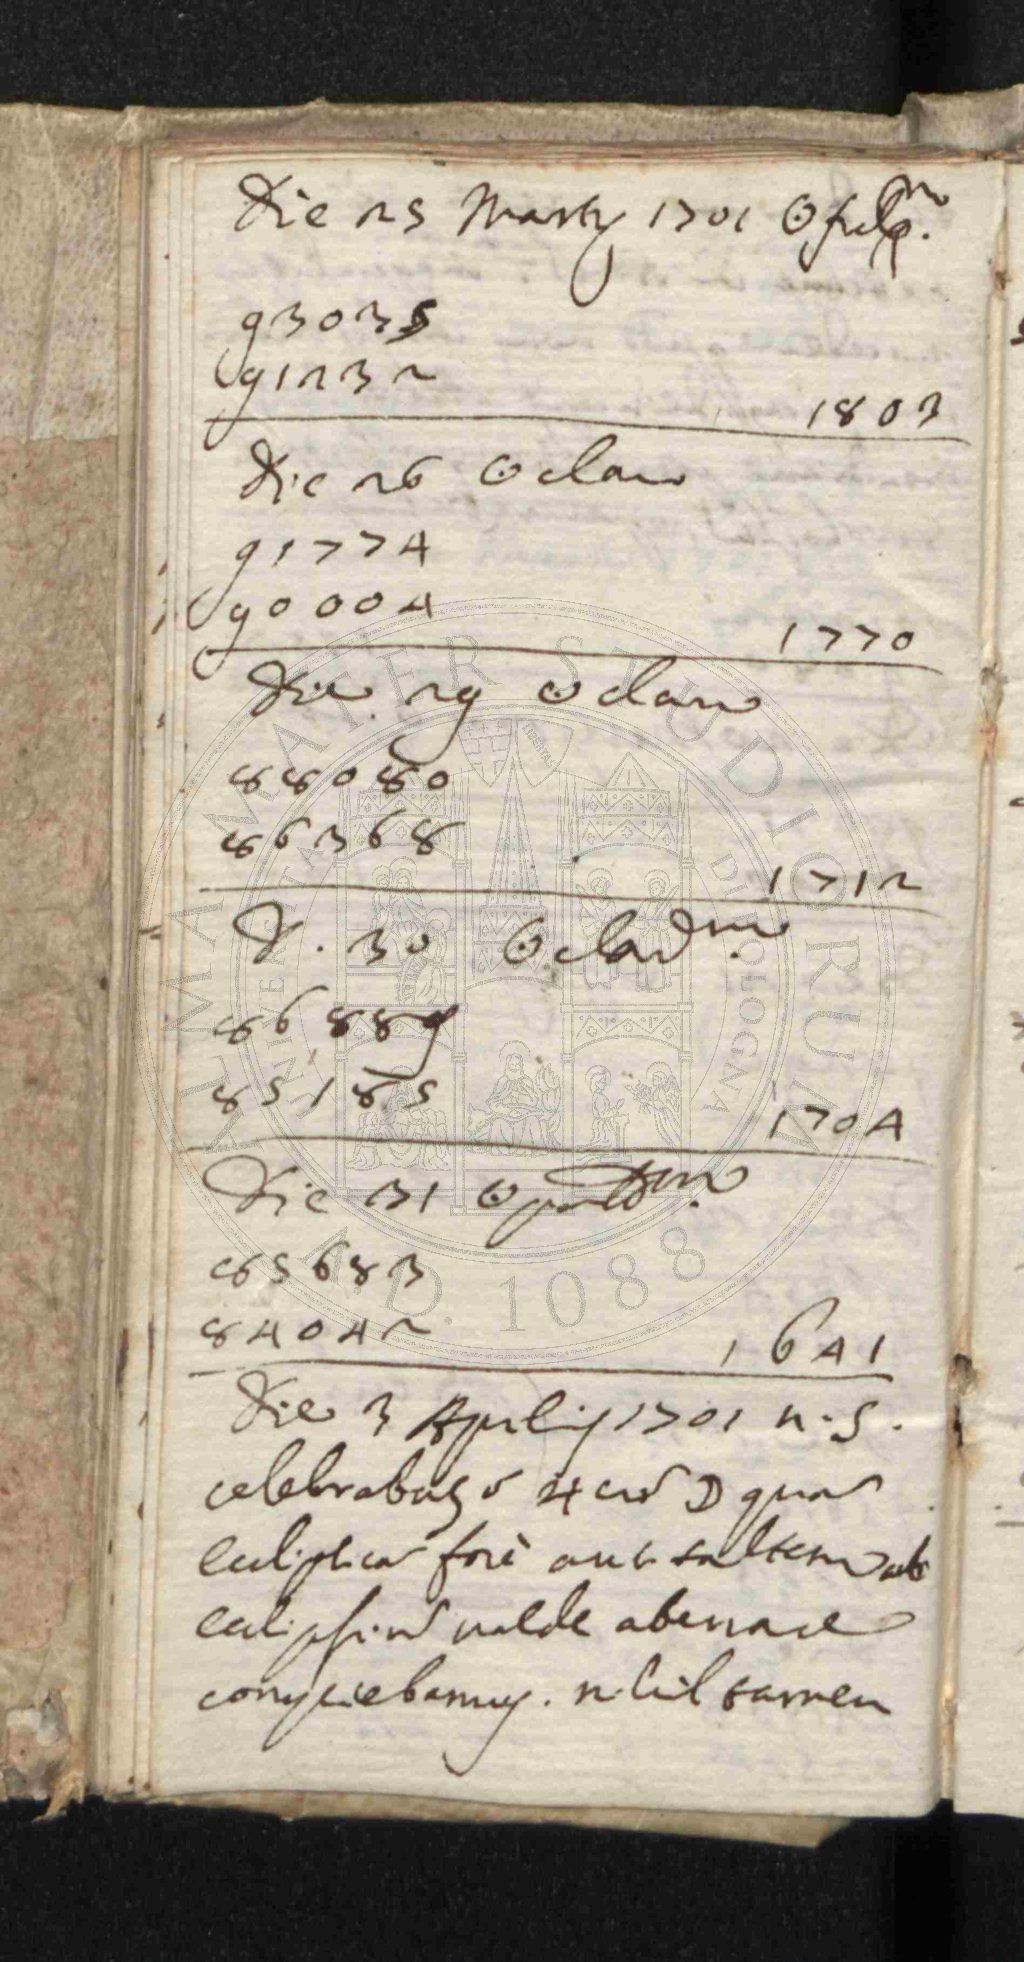 Die 25 Martij 1701 ☉ fulg.m
93035
91232
1803
Die 26 ☉ clar
91774
90004
1770
Die 29 ☉ clar
88080
86368
1712
D. 30 ☉ clar m.
86889
85185
1704
Die 31 ☉
85683
84042
1641
Die 3 Aprilij 1701 n. S.
celebrabat ☌ ♃ cũ ☽ quã
eclipticã fore aut saltem ab
eclipsi nõ valde aberrare
conyciebamus. nihil tamen
ALMA MATER STUDIORUM
A.D. 1088